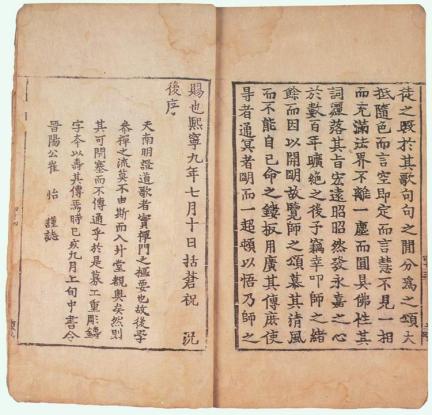 徒之於其歌句句之間分為之頌大
抵隨色而言空即定而言慧不見一相
而充滿法界不離一塵而圓具佛性其
詞灑落其旨宏遠昭昭然發永嘉之心
於數百年曠絕之後予竊幸叩師之緒
餘而因以開明故覽師之頌慕其清風
而不能自已命之鏤板用廣其傳庶使
尋者通冥者明而一起頓以悟乃師之
賜也熙寧九年七月十日括蒼祝 況
後序
夫南明證道歌者實禪門之樞要也故後學
參禪之流莫不由斯而入升堂覩奧矣然則
其可閉塞而不傳通乎於是募工重彫鑄
字夲以壽其傳焉時己亥九月上旬中書令
晉陽公崔 怡 謹誌